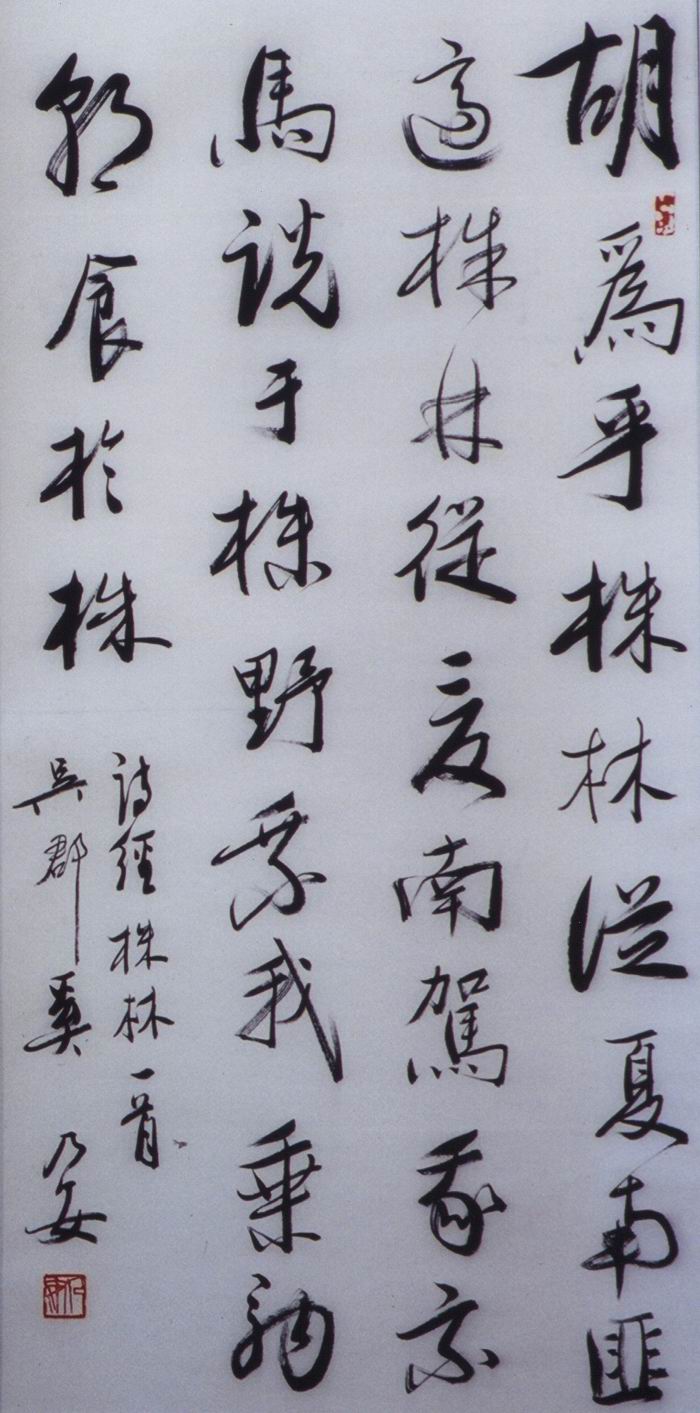 胡爲乎株林從夏南匪
適株林從夏南駕我乘
馬說于株野乘我乘駒
朝食於株
詩經株林一首
吳郡